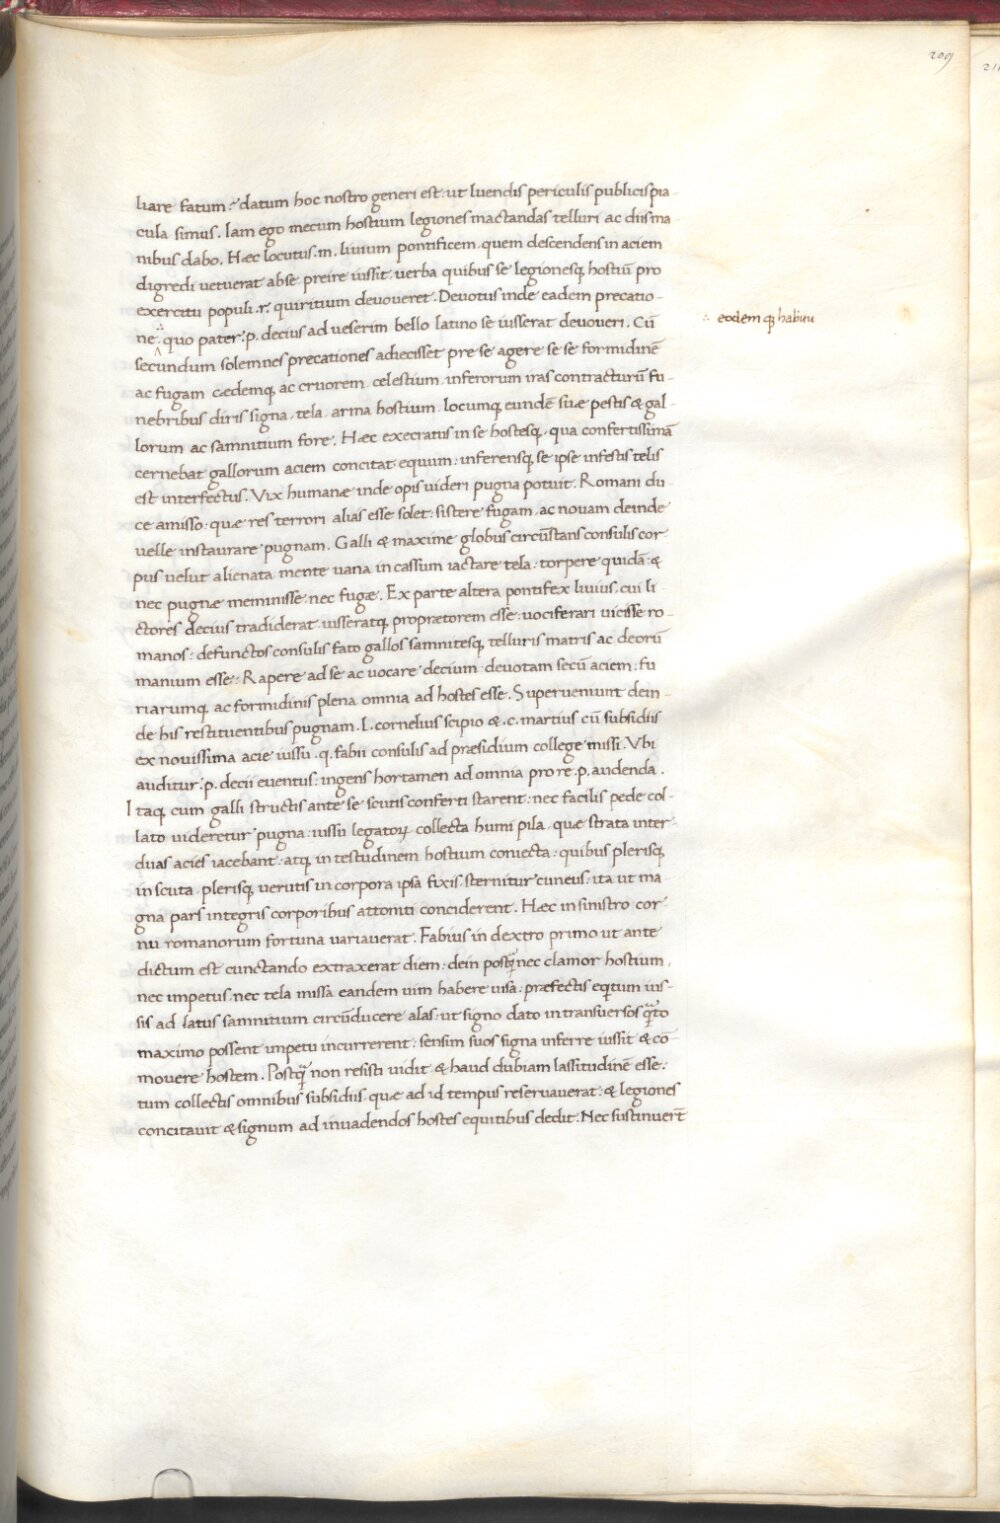 209
liare fatum? datum hoc nostro generi est: ut luendis periculis publicis pia-
cula simus. Iam ego mecum hostium legiones mactandas telluri ac diis ma
nibus dabo. Hæc locutus .m. liuium pontificem quem descendens in aciem
digredi uetuerat ab se preire iussit uerba quibus se legionesq; hostiū pro
exercitu populi .r. quiritium deuoueret. Deuotus inde eadem precatio-
ne quo pater .p. decius ad ueserim bello latino se iusserat deuoueri. Cū
∴ eodemq; habitu
secundum solemnes precationes adiecisset pre se agere se se formidinē
ac fugam cædemq; ac cruorem cælestium inferorum iras contacturū fu-
nebribus diris signa tela arma hostium locumq; eundē suæ pestis & gal-
lorum ac samnitium fore. Hæc execratus in se hostesq; qua confertissimā
cernebat gallorum aciem concitat equum: inferensq; se ipse infestis telis
est interfectus. Vix humanæ inde opis uideri pugna potuit. Romani du-
ce amisso: quæ res terrori alias esse solet: sistere fugam ac nouam deinde
uelle instaurare pugnam. Galli & maxime globus circūstans consulis cor
pus uelut alienata mente uana in cassum iactare tela: torpere quidā: &
nec pugnæ meminisse nec fugæ. Ex parte altera pontifex liuius cui li-
ctores decius tradiderat iusseratq; propraetorem esse: uociferari uicisse ro-
manos: defunctos consulis fato gallos samnitesq; telluris matris ac deorū
manium esse: Rapere ad se ac uocare decium deuotam secū aciem: fu
riarumq; ac formidinis plena omnia ad hostes esse. Superueniunt dein-
de his restituentibus pugnam .l. cornelius scipio & .c. martius cū subsidiis
ex nouissima acie iussu .q. fabii consulis ad præsidium college missi. Vbi
auditur .p. decii euentus: ingens hortamen ad omnia pro re .p. audenda.
Itaq; cum galli structis ante se scutis conferti starent: nec facilis pede col-
lato uideretur pugna: iussu legatoꝝ collecta humi pila quæ strata inter
duas acies iacebant: atq; in testudinem hostium coniecta: quibus plerisq;
in scuta plerisq; uerutis in corpora ipsa fixis sternitur cuneus: ita ut ma
gna pars integris corporibus attoniti conciderent. Hæc in sinistro cor-
nu romanorum fortuna uariauerat. Fabius in dextro primo ut ante
dictum est cunctando extraxerat diem: dein postq̄ nec clamor hostium
nec impetus nec tela missa eandem uim habere uisa: præfectis equitum ius-
sis ad latus samnitium circūducere alas: ut signo dato in transuersos q̄to
maximo possent impetu incurrerent: sensim suos signa inferre iussit & cō
mouere hostem. Postq̄ non resisti uidit & haud dubiam lassitudinē esse:
tum collectis omnibus subsidiis quæ ad id tempus reseruauerat: & legiones
concitauit & signum ad inuadendos hostes equitibus dedit. Nec sustinuerт̄